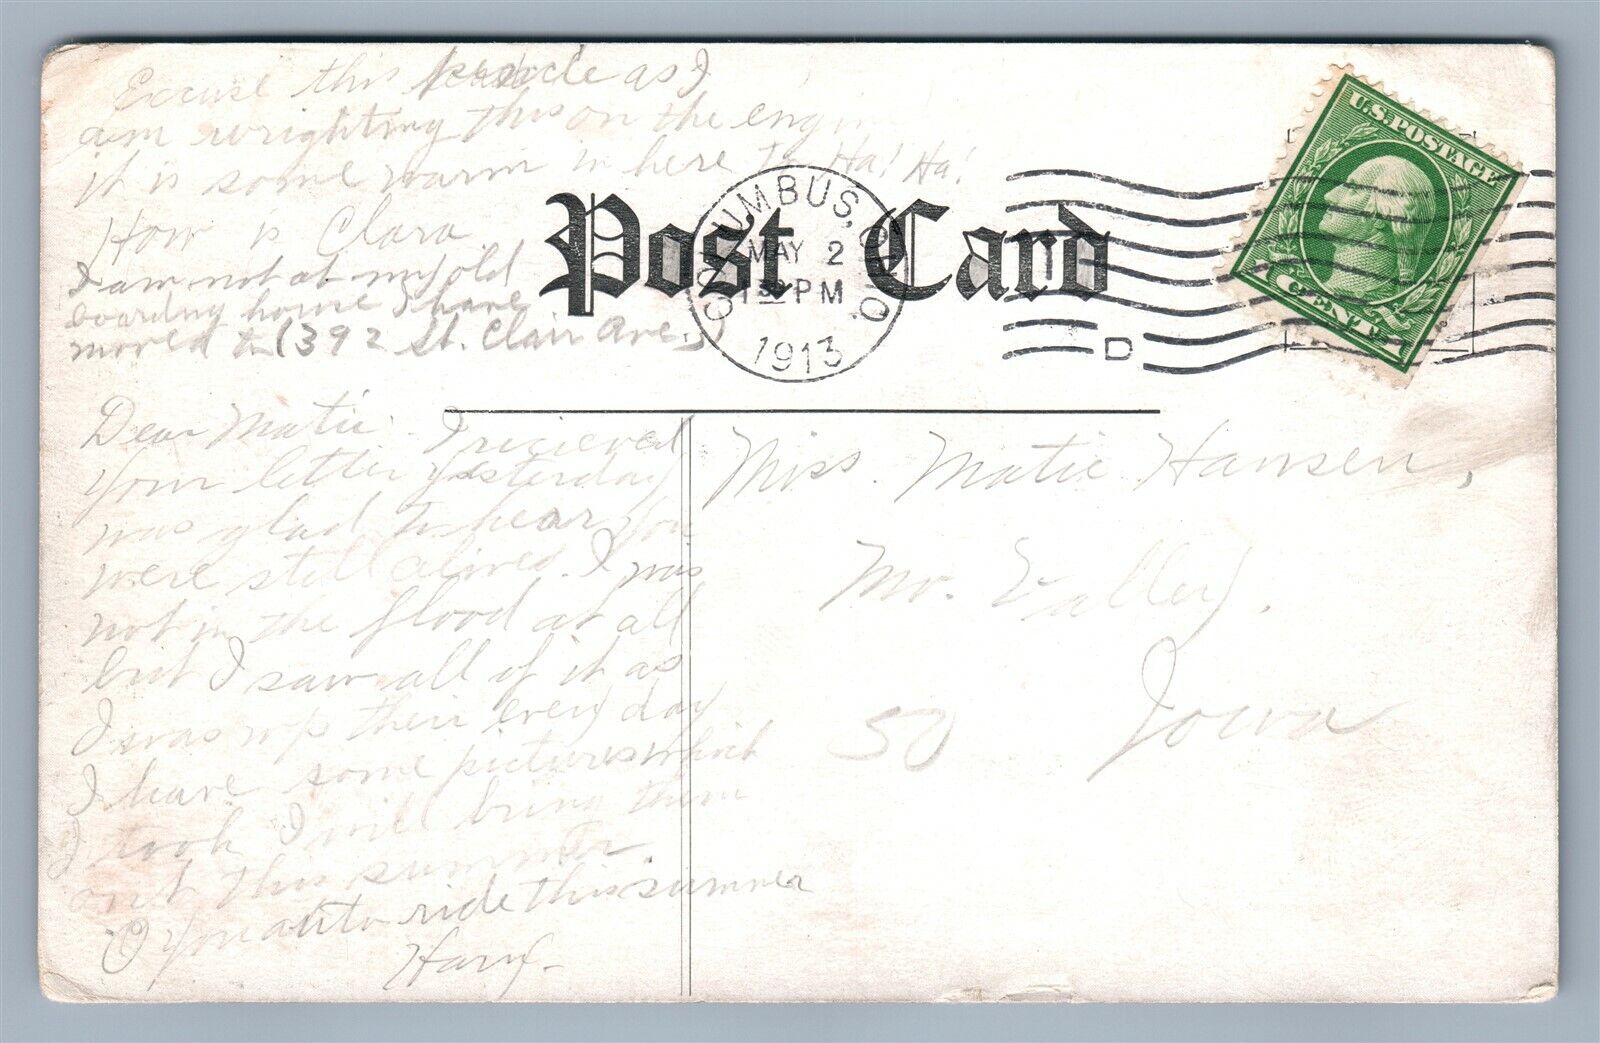 Excuse this as I
am wrighting this on the engin
it is some warm in here to Ha! Ha!
How is Clara
I am not at my old
boarding house I have
moved to (392 St. Clair Ave.)
Post Card
COLUMBUS, OHIO.
MAY 2
1 30 PM
1913
D
U.S. POSTAGE
1 CENT 1
Dear Matie I recieved
your letter yesterday
was glad to hear you
were still alived. I was
not in the flood at all
but I saw all of it as
I was up their every day
I have some pictures which
I took I will bring them
out this summer.
O you auto ride this summer
Harry.
Miss. Matie Hansen,
Mo. Valley.
Iowa
50